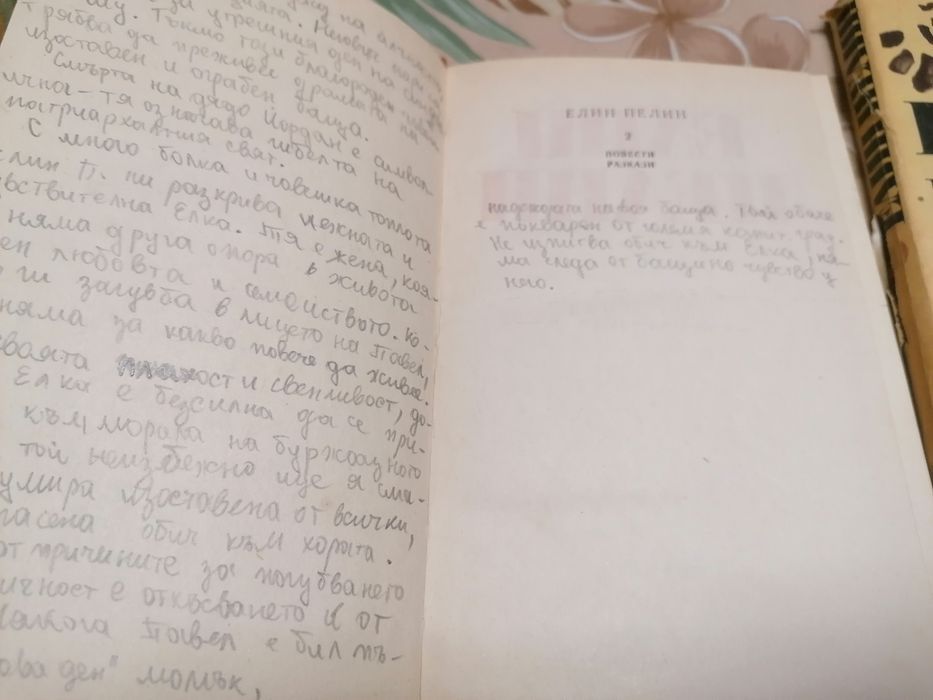 на
ията. Неговите
за утрешния ден на
му. Тъкмо този благороден човек
трябва да преживее драмата на
изоставен и ограбен баща.
Смъртта на дядо Йордан е символ
ична – тя означава гибелта на
патриархалния свят.
С много болка и човешка топлота
елин П. ни разкрива нежната и
чувствителна Елка. Тя е жена, коя-
няма друга опора в живота
ен любовта и семейството. ко-
ги загубва в лицето на Павел,
няма за какво повече да живее.
своята плахост и свенливост, до-
Елка е безсилна да се при-
към морала на буржоазното
той неизбежно ще я сма-
умира изоставена от всички,
гасена обич към хората.
от причините за погубването
ичност е откъсването ѝ от
Някога Павел е бил пъ-
ова ден" момък,
ЕЛИН ПЕЛИН
2
ПОВЕСТИ
РАЗКАЗИ
надеждата на своя баща. Той обаче
е покварен от големия капит. град.
Не изпитва обич към Елка, ня-
ма следа от бащино чувство у
него.